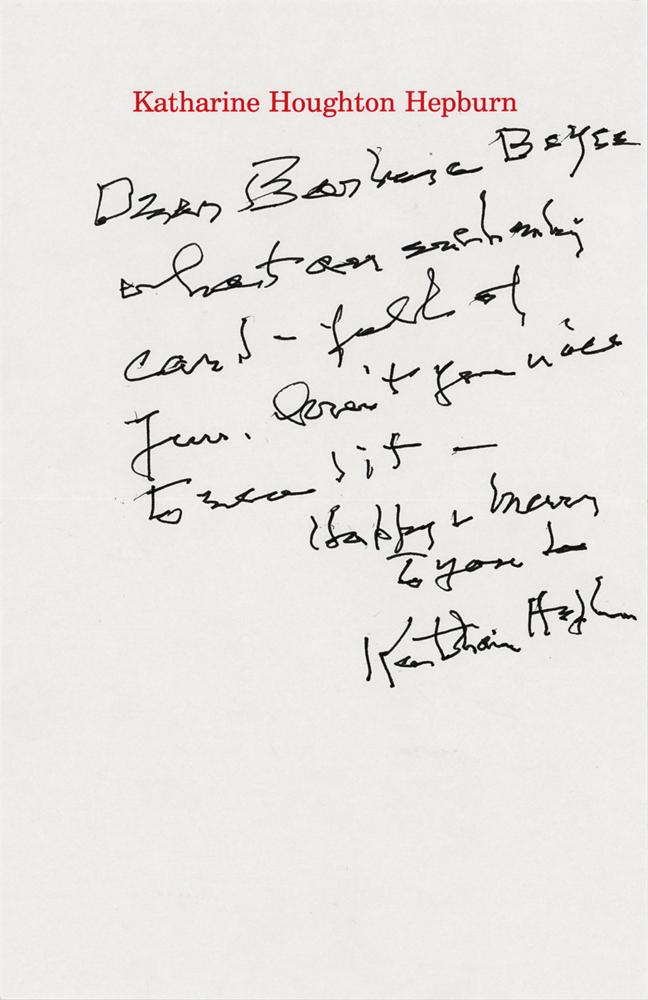 Katharine Houghton Hepburn
Dear Barbara
what an enchanting
card - full of
fun. Aren't you nice
to send it -
Happy & merry
to you too
Katharine Hepburn